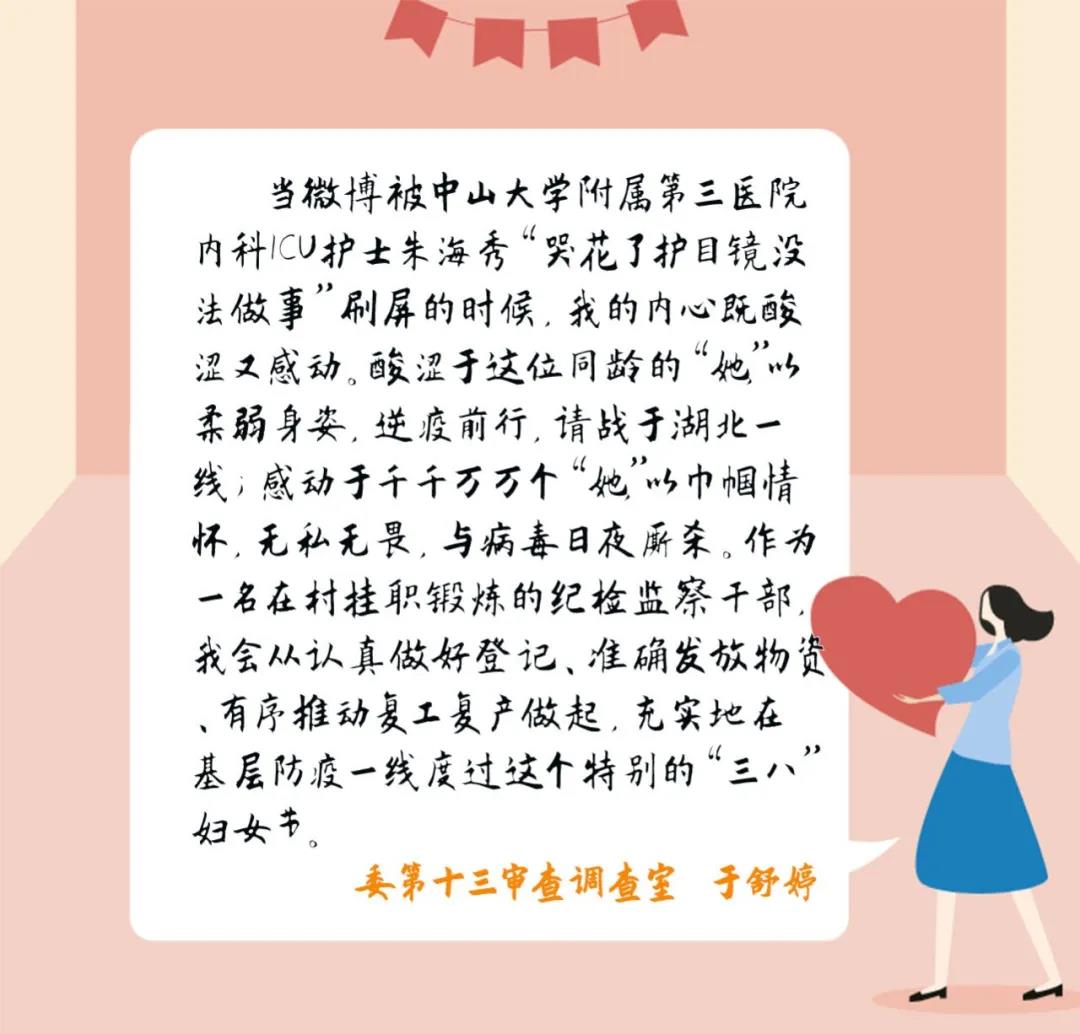 当微博被中山大学附属第三医院
内科ICU护士朱海秀“哭花了护目镜没
法做事”刷屏的时候，我的内心既酸
涩又感动。酸涩于这位同龄的“她”以
柔弱身姿，逆疫前行，请战于湖北一
线；感动于千千万万个“她”以巾帼情
怀，无私无畏，与病毒日夜厮杀。作为
一名在村挂职锻炼的纪检监察干部，
我会从认真做好登记、准确发放物资
、有序推动复工复产做起，充实地在
基层防疫一线度过这个特别的“三八”
妇女节。
委第十三审查调查室 于舒婷